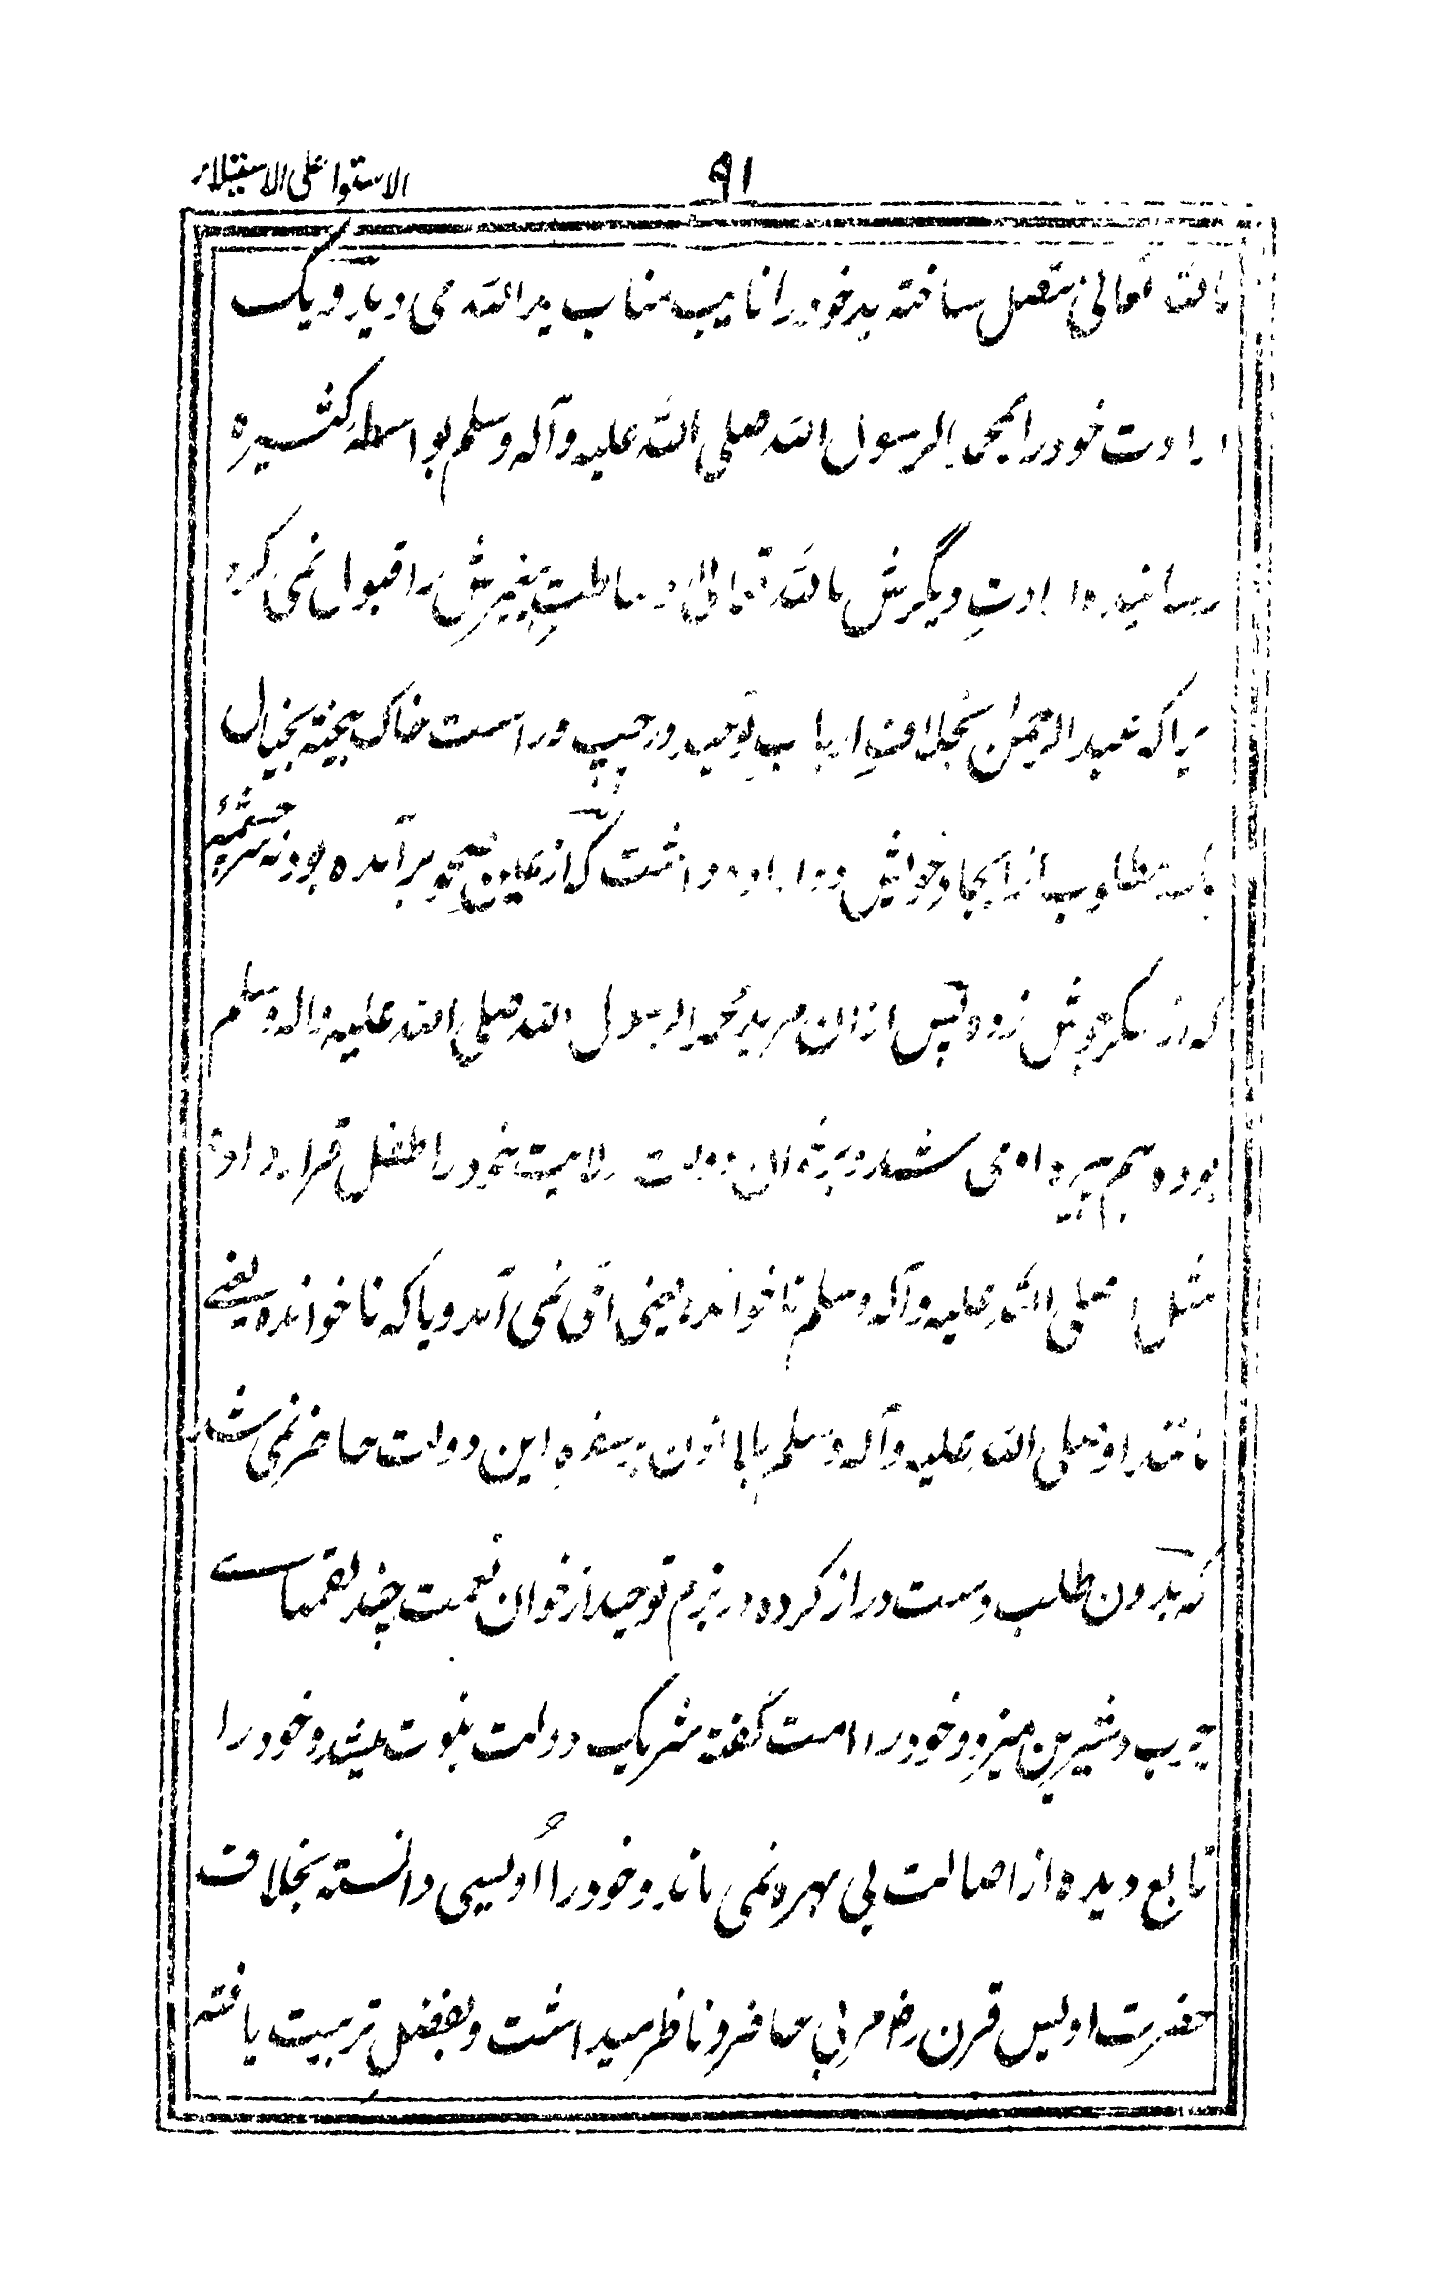 الاستوا علی الاستیلاء
۹۱
بالله تعالی متصل ساخته ید خود را نایب مناب ید الله می دید و یک
ارادت خود را بمحمد الرسول الله صلی الله علیه وآله وسلم بواسطه کثیره
رسانیده ارادت دیگرش بالله تعالی وساطت پیغمبرش را قبول نمی کرد
چراکه عبدالرحمن بخلاف ارباب توحید در چپ و راست خاک بیخته بخیال
مطلوب از ایجا خواش دو ارادت داشت که از برآمده بود نه سرچشمه
که از سکر جوش زده پس ازان مرید محمد الرسول الله صلی الله علیه واله وسلم
بوده هم پیره او می شد و بخوان دولت ولایت خود را طفل قرار داده
مثل او صلی الله علیه وآله وسلم ناخوانده یعنی اُمّی نمی آمد و یا که ناخوانده یعنے
مانند او صلی الله علیه وآله وسلم بلا اذن بر سفره این دولت حاضر نمی شد
که بدون طلب دست دراز کرده در بزم توحید از خوان نعمت چند لقمهائے
چرب و شیرین میزد و خود را امت گفته شریک دولت نبوت میشد و خود را
تابع دیده از اصالت بی بهره نمی ماند و خود را اُویسی دانسته بخلاف
حضرت اویس قرن رض مربی حاضر و ناظر میداشت و بفضل تربیت یافته